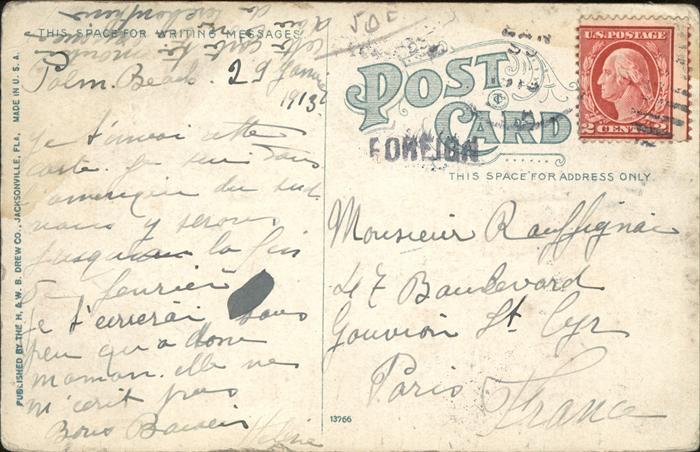 THIS SPACE FOR WRITING MESSAGES
Palm Beach 29
1913
Je t'envoi cette
carte. Je suis dans
l'amerique du sud
nous y serons
jusqu'a la fin
fevrier
Je t'ecrirai sous
peu qu'a donc
maman. elle ne
m'ecrit pas
Bons Baisers
PUBLISHED BY THE H. & W. B. DREW CO., JACKSONVILLE, FLA. MADE IN U. S. A.
POST CARD
FOREIGN
U.S. POSTAGE
2 CENTS 2
THIS SPACE FOR ADDRESS ONLY.
Monsieur Rauffignac
47 Boulevard
Gouvion St Cyr
Paris
France
13766